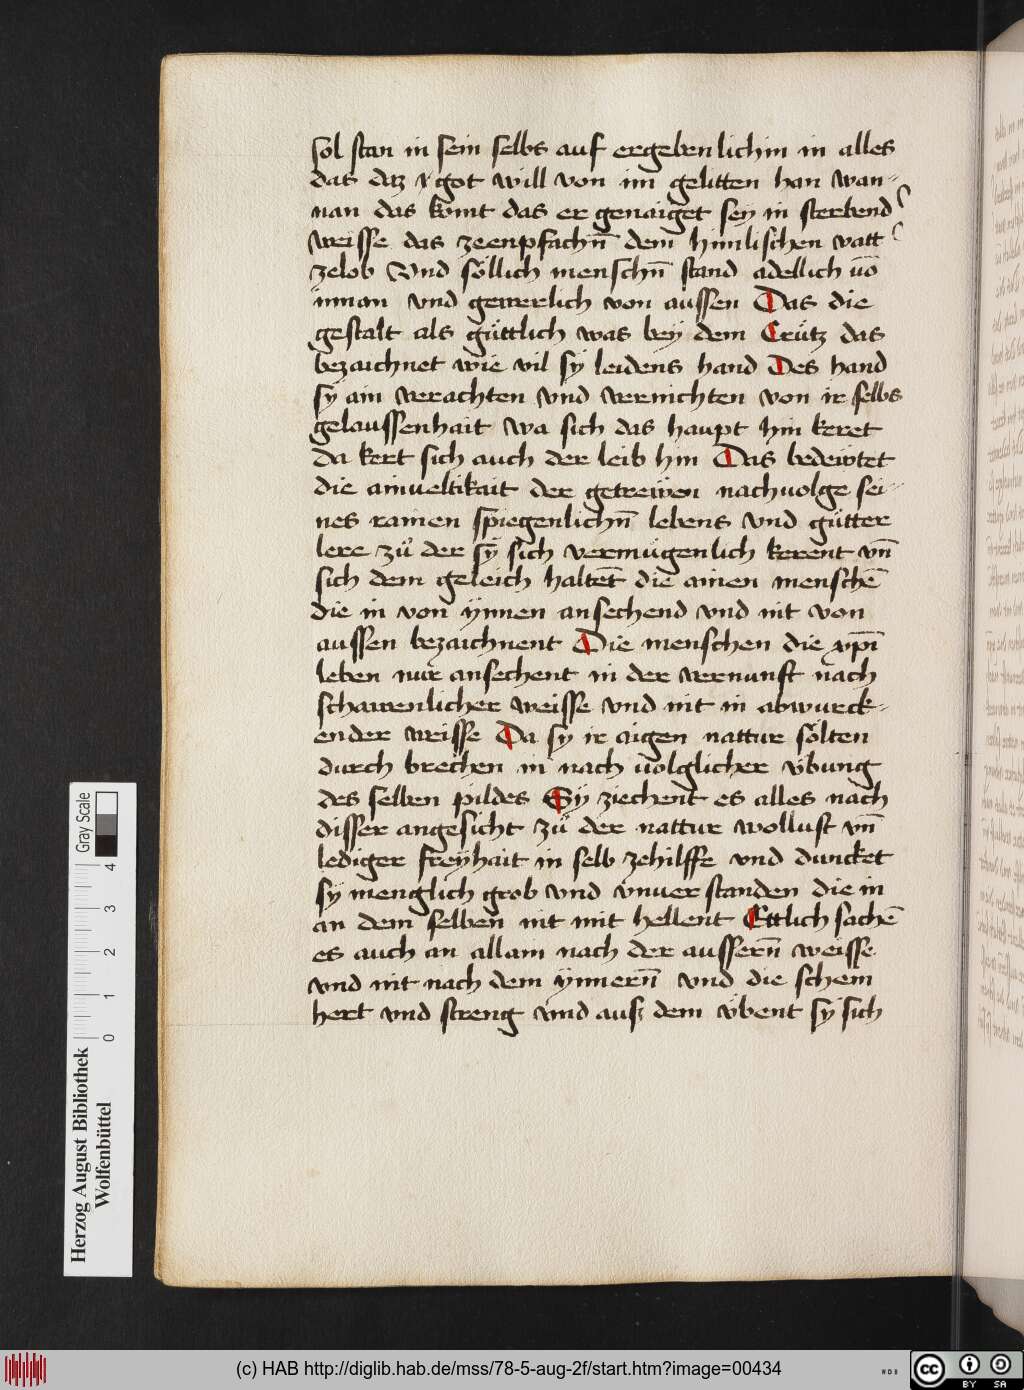 sol stan in sein selbs auf ergebenlichin in alles
das daz got will von im gelitten han wan-
nan das komt das er genaiget sey in sterbend
weisse das zeenpfachn̄ dem himlischen vatt
zelob Vnd söllich menschn̄ stand adellich vō
innan vnd gewerlich von aussen Das die
gestalt als güttlich was bey dem Crütz das
bezaichnet wie vil sÿ leidens hand Des hand
sy ain verachten vnd vernichten von ir selbs
gelaussenhait wa sich das haupt hin keret
da kert sich auch der leib hin Das bedewtet
die ainueltikait der getrewen nachuolge sei-
nes rainen spiegenlichn̄ lebens vnd gütter
lere zů der sÿ sich vermügenlich kerent vn̄
sich dem geleich haltet die ainen menschē
die in von ÿnnen ansechend vnd nit von
aussen bezaichnent Die menschen die xp̄i
leben nur ansechent in der vernunft nach
schawenlicher weisse vnd nit in abwurck-
ender weisse Da sy ir aigen nattur sölten
durch brechen in nach volglicher übung
des selben pildes Sÿ ziechent es alles nach
disser angesicht zů der nattur wollust vn̄
lediger freÿhait in selb zehilffe vnd duncket
sÿ menglich grob vnd vnuerstanden die in
an dem selben nit mit hellent Ettlich sachē
es auch an allain nach der aussern̄ weisse
vnd nit nach dem ÿnnern̄ vnd die schein
hert vnd streng vnd ausz dem übent sÿ sich
Herzog August Bibliothek
Wolfenbüttel
Gray Scale
0 1 2 3 4
(c) HAB http://diglib.hab.de/mss/78-5-aug-2f/start.htm?image=00434
cc BY SA